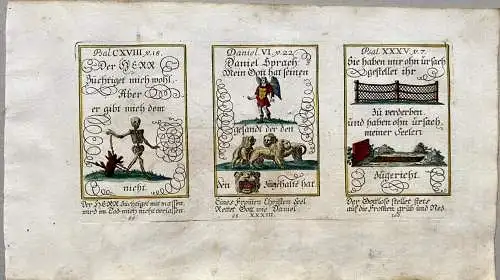 Psal CXVIII v. 18.
Der HERR
züchtiget mich wohl
Aber
er gibt mich dem
nicht.
Der HERR züchtiget mit massen,
wird im Tod mich nicht verlassen
Daniel. VI. v. 22.
Daniel Sprach
Mein Gott hat seinen
gesandt der den
den
Zugehalte hat.
Eines From̅en Christen Seel
Rettet Gott wie Daniel
XXXIII.
Psal. XXXV. v. 7.
Sie haben mir ohn ürsach
gestellet ihr
Zü verderben
und haben ohn ürsach
meiner Seelen
zügericht.
Der Gottlose stellet stets
auf die Frommen grüb und Netz